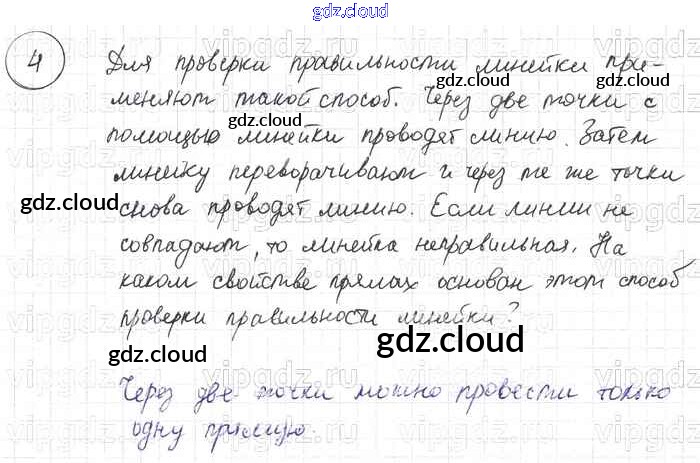 gdz.cloud
4
Для проверки правильности линейки при-
меняют такой способ. Через две точки с
помощью линейки проводят линию. Затем
линейку переворачивают и через те же точки
снова проводят линию. Если линии не
совпадают, то линейка неправильная. На
каком свойстве прямых основан этот способ
проверки правильности линейки?
Через две точки можно провести только
одну прямую.
gdz.cloud
gdz.cloud
gdz.cloud
gdz.cloud
gdz.cloud
gdz.cloud
gdz.cloud
vipgdz